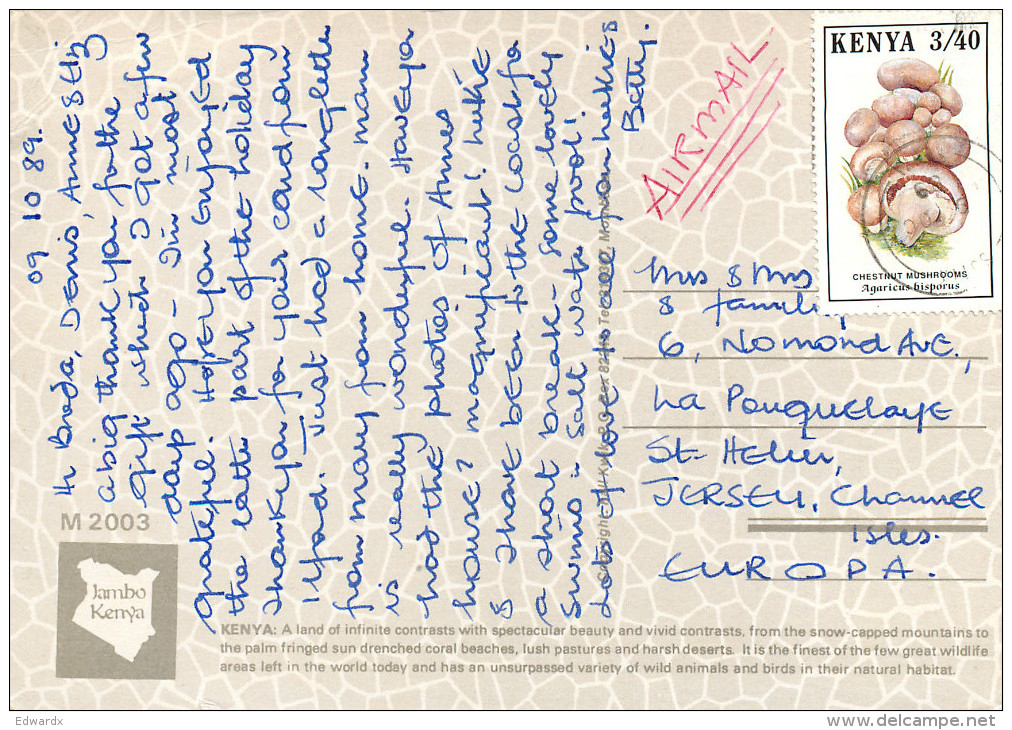 09 10 89.
Hi Breda, Denis, Anne & Eliz
a big thank you for the
gift which I got a few
days ago - I'm most
grateful. Hope you enjoyed
the latter part of the holiday
Thank you for your card from
Ilford. Just had a long letter
from mary from home. mam
is really wonderful. Have ya
had the photos of Annes
house? magnificent! Luke
& I have been to the Coast for
a short break - some lovely
swims - salt water pool!
Lots of love to all from
Betty.
AIRMAIL
KENYA 3/40
CHESTNUT MUSHROOMS
Agaricus bisporus
Mrs & Mrs
& family
6, Nomond Ave.,
La Pouquelaye
St. Helier,
JERSEY, Channel
Isles.
EUROPA.
M 2003
Jambo
Kenya
KENYA: A land of infinite contrasts with spectacular beauty and vivid contrasts, from the snow-capped mountains to
the palm fringed sun drenched coral beaches, lush pastures and harsh deserts. It is the finest of the few great wildlife
areas left in the world today and has an unsurpassed variety of wild animals and birds in their natural habitat.
Edwardx
delcampe.net